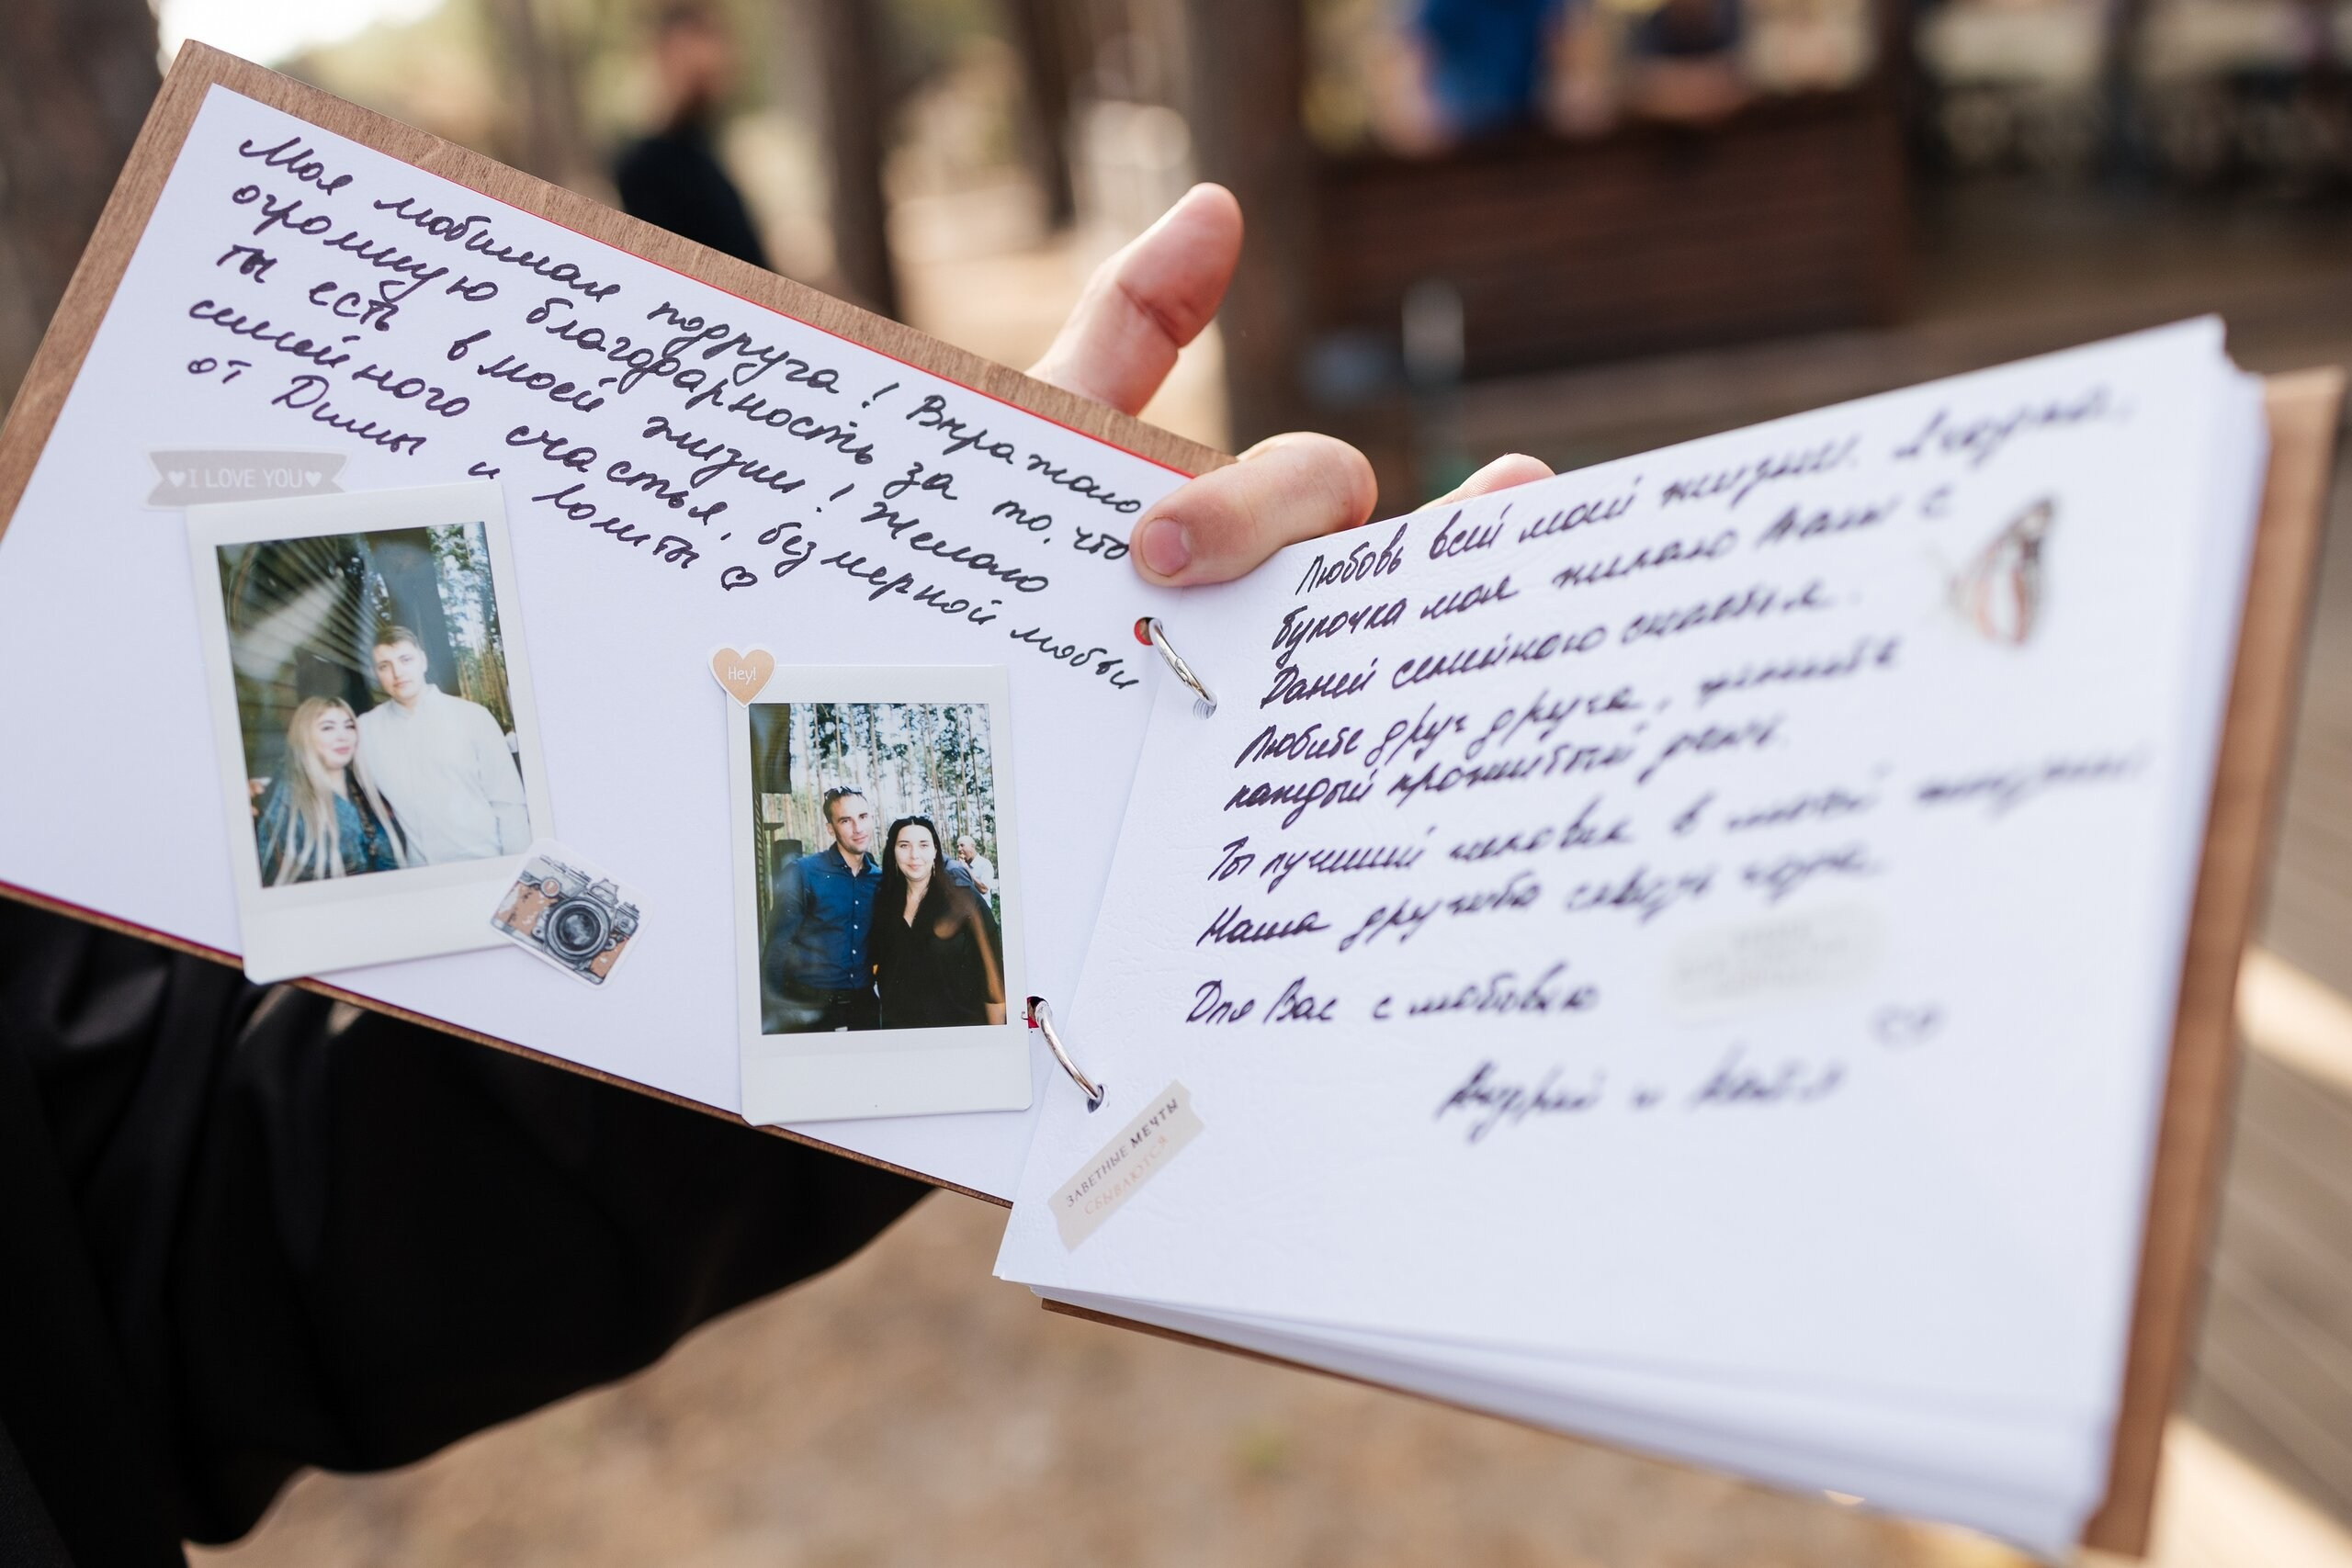 Моя любимая подруга! Выражаю
огромную благодарность за то, что
ты есть в моей жизни! Желаю
семейного счастья, безмерной любви
от Димы и Лолиты
I LOVE YOU
Hey!
Любовь всей моей жизни.
булочка моя желаю Вам с
Даней семейного счастья.
Любите друг друга, цените
каждый прожитый день.
Ты лучший человек в моей жизни
Наша дружба сквозь года.
Для Вас с любовью
Андрей и Катя
ЗАВЕТНЫЕ МЕЧТЫ
СБЫВАЮТСЯ